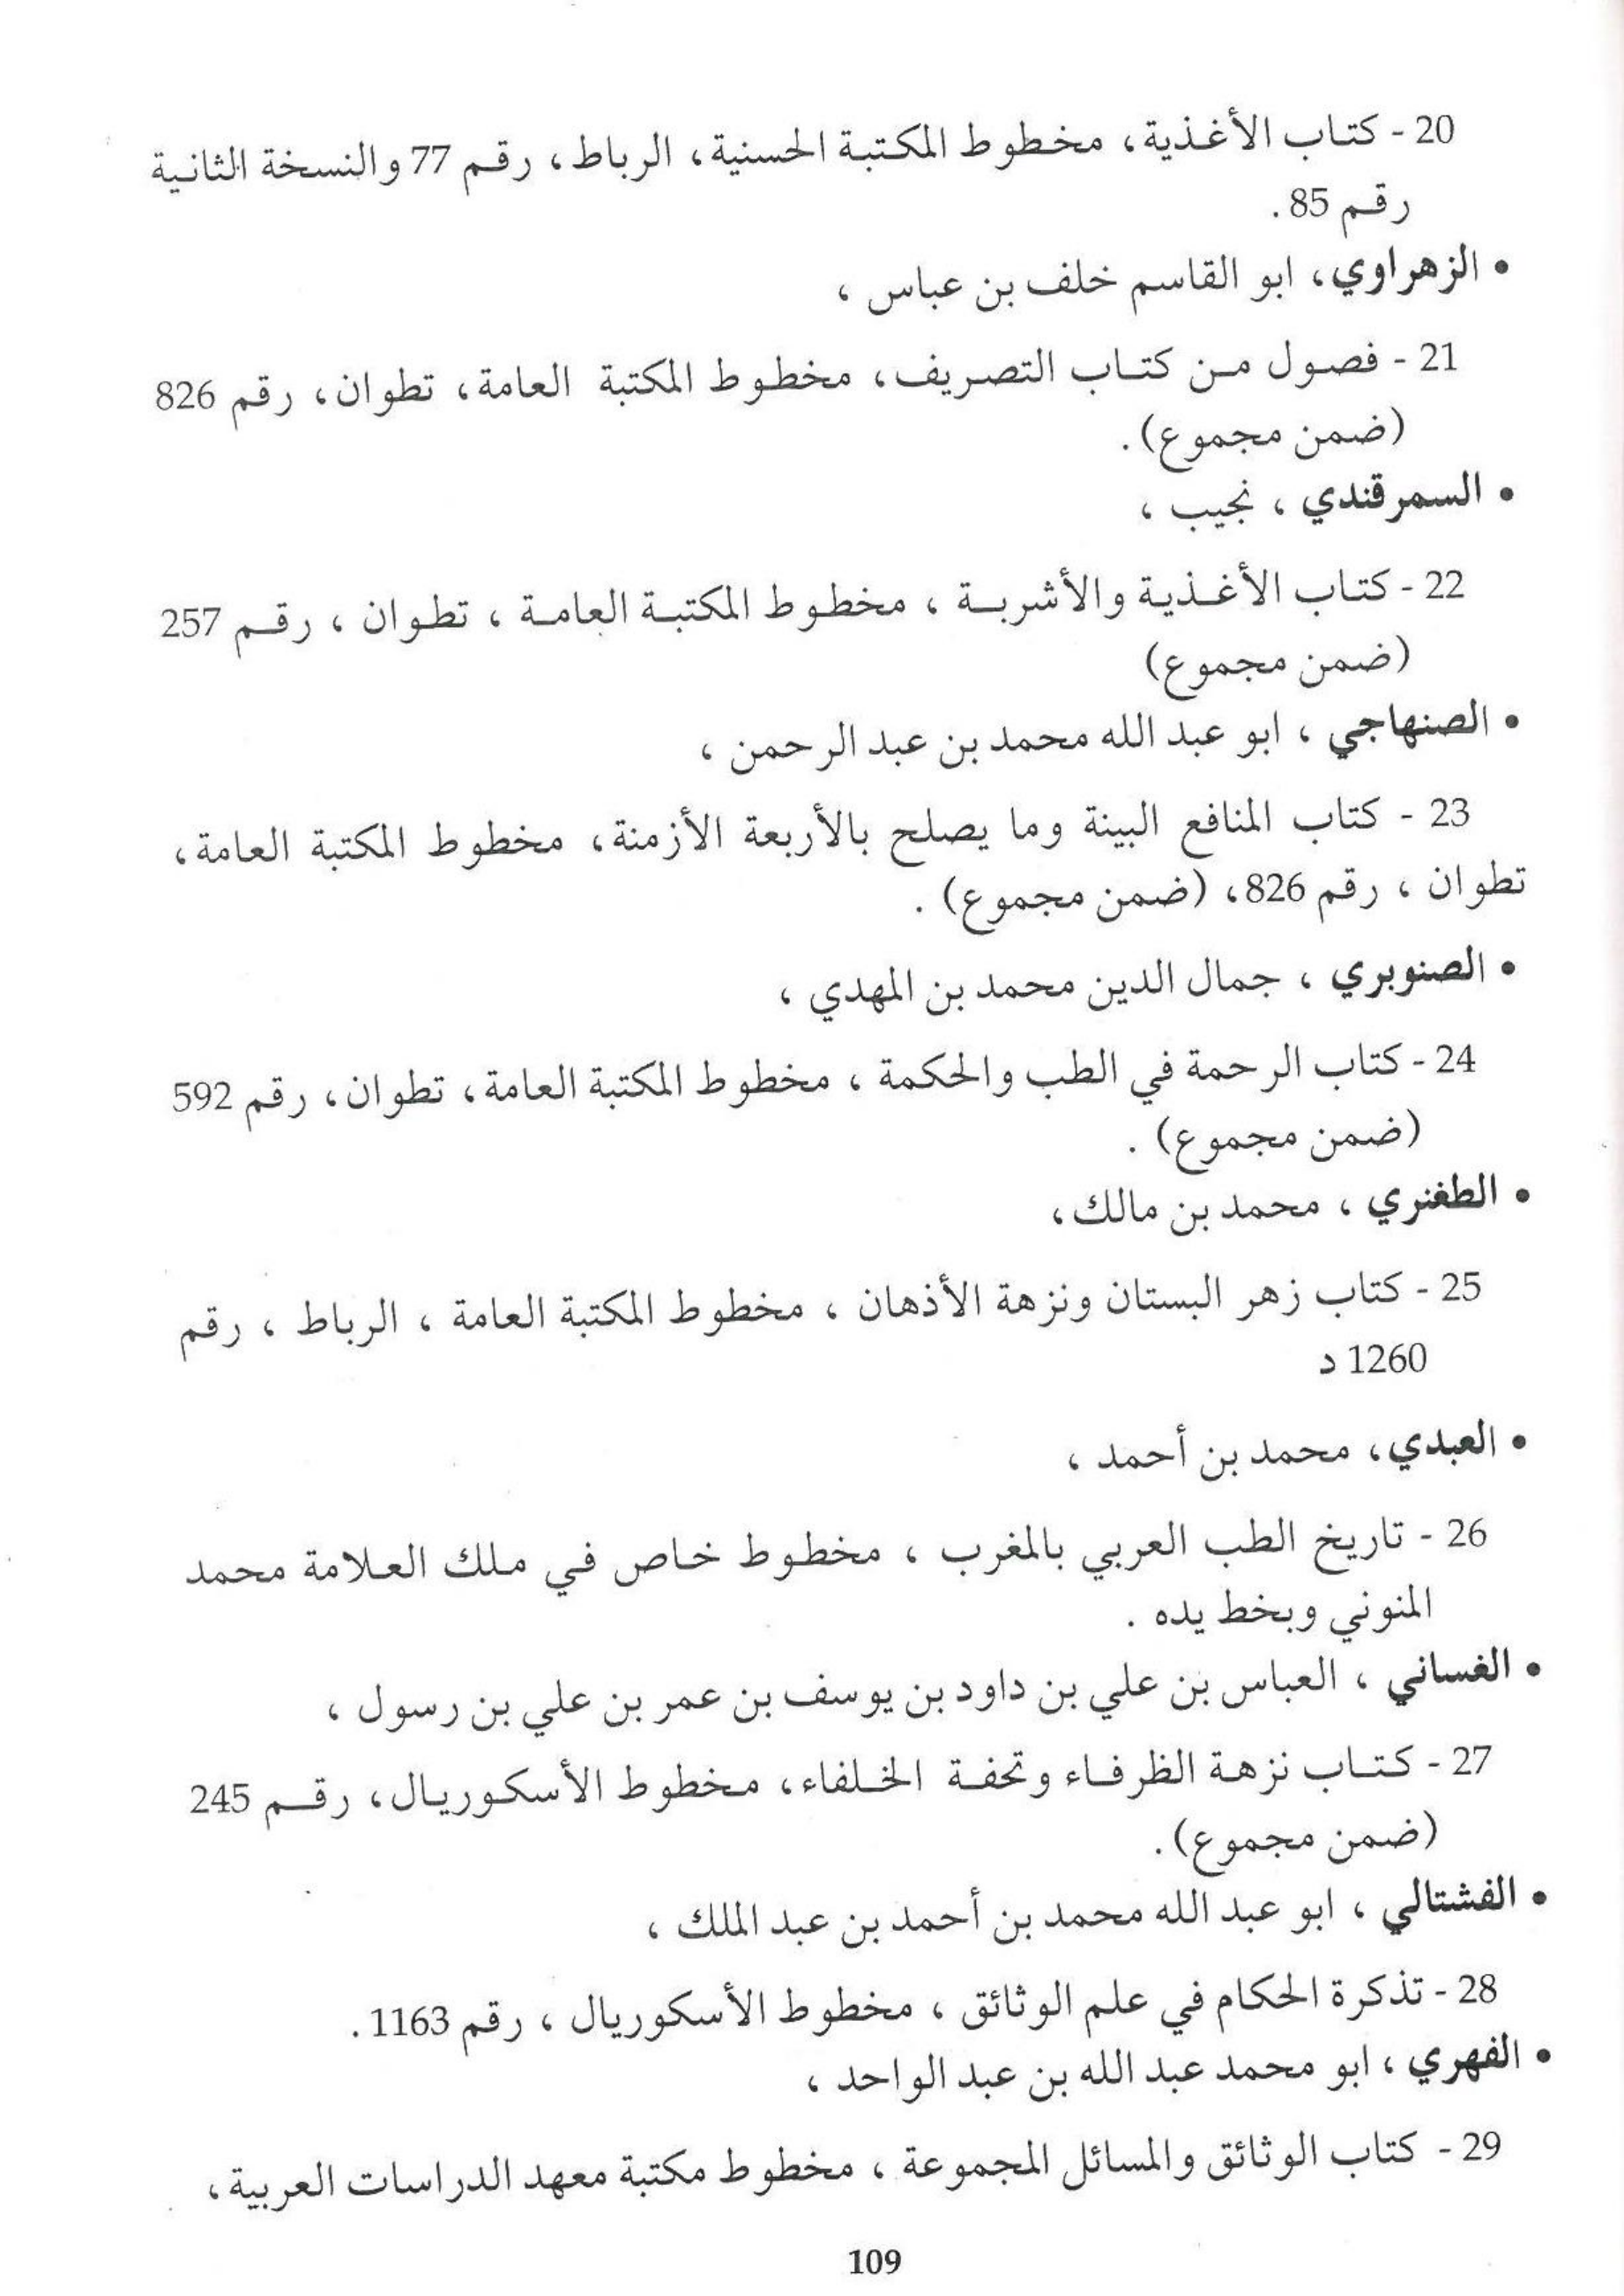 20 - كتاب الأغذية، مخطوط المكتبة الحسنية، الرباط، رقم 77 والنسخة الثانية
رقم 85 .
• الزهراوي، ابو القاسم خلف بن عباس ،
21 - فصول من كتاب التصريف، مخطوط المكتبة العامة، تطوان، رقم 826
(ضمن مجموع).
• السمرقندي ، نجيب ،
22 - كتاب الأغذية والأشربة ، مخطوط المكتبة العامة ، تطوان ، رقم 257
(ضمن مجموع)
• الصنهاجي ، ابو عبد الله محمد بن عبد الرحمن ،
23 - كتاب المنافع البينة وما يصلح بالأربعة الأزمنة، مخطوط المكتبة العامة،
تطوان ، رقم 826، (ضمن مجموع) .
• الصنوبري ، جمال الدين محمد بن المهدي ،
24 - كتاب الرحمة في الطب والحكمة ، مخطوط المكتبة العامة، تطوان، رقم 592
(ضمن مجموع) .
• الطغنري ، محمد بن مالك،
25 - كتاب زهر البستان ونزهة الأذهان ، مخطوط المكتبة العامة ، الرباط ، رقم
1260 د
• العبدي، محمد بن أحمد ،
26 - تاريخ الطب العربي بالمغرب ، مخطوط خاص في ملك العلامة محمد
المنوني وبخط يده .
• الغساني ، العباس بن علي بن داود بن يوسف بن عمر بن علي بن رسول ،
27 - كتاب نزهة الظرفاء وتحفة الخلفاء، مخطوط الأسكوريال، رقم 245
(ضمن مجموع).
• الفشتالي ، ابو عبد الله محمد بن أحمد بن عبد الملك ،
28 - تذكرة الحكام في علم الوثائق ، مخطوط الأسكوريال ، رقم 1163 .
• الفهري ، ابو محمد عبد الله بن عبد الواحد ،
29 - كتاب الوثائق والمسائل المجموعة ، مخطوط مكتبة معهد الدراسات العربية،
109